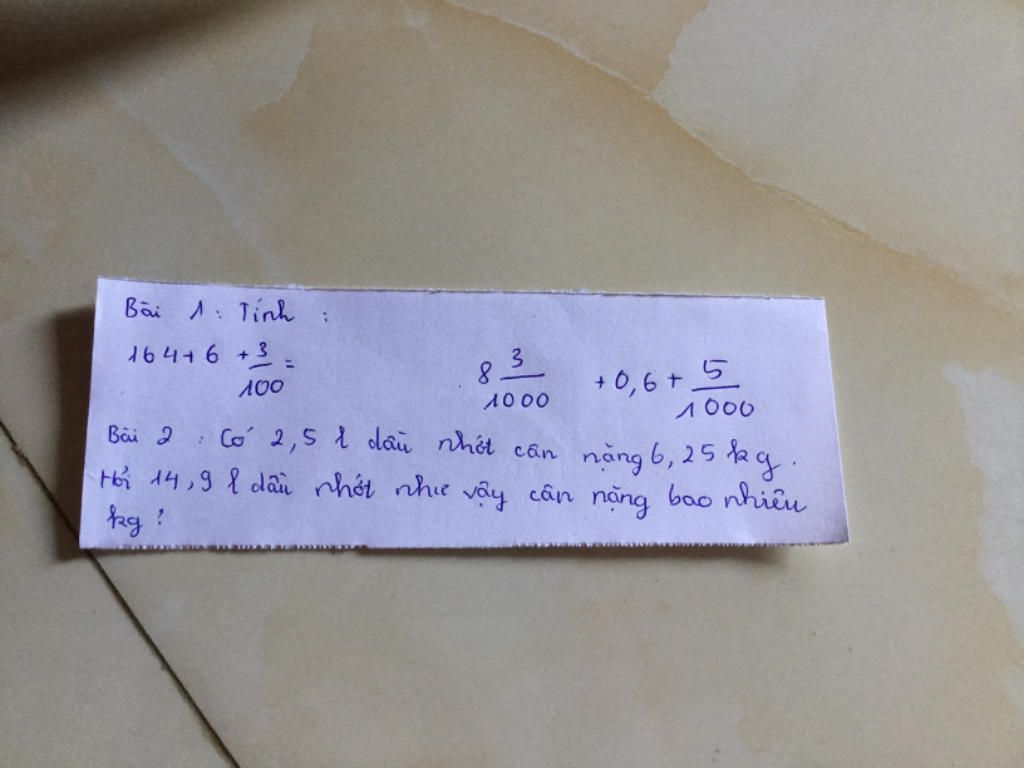 Bài 1 : Tính :
164+6 + 3/100 = 8 3/1000 + 0,6 + 5/1000
Bài 2 : Có 2,5 l dầu nhớt cân nặng 6,25 kg.
Hỏi 14,9 l dầu nhớt như vậy cân nặng bao nhiêu
kg ?